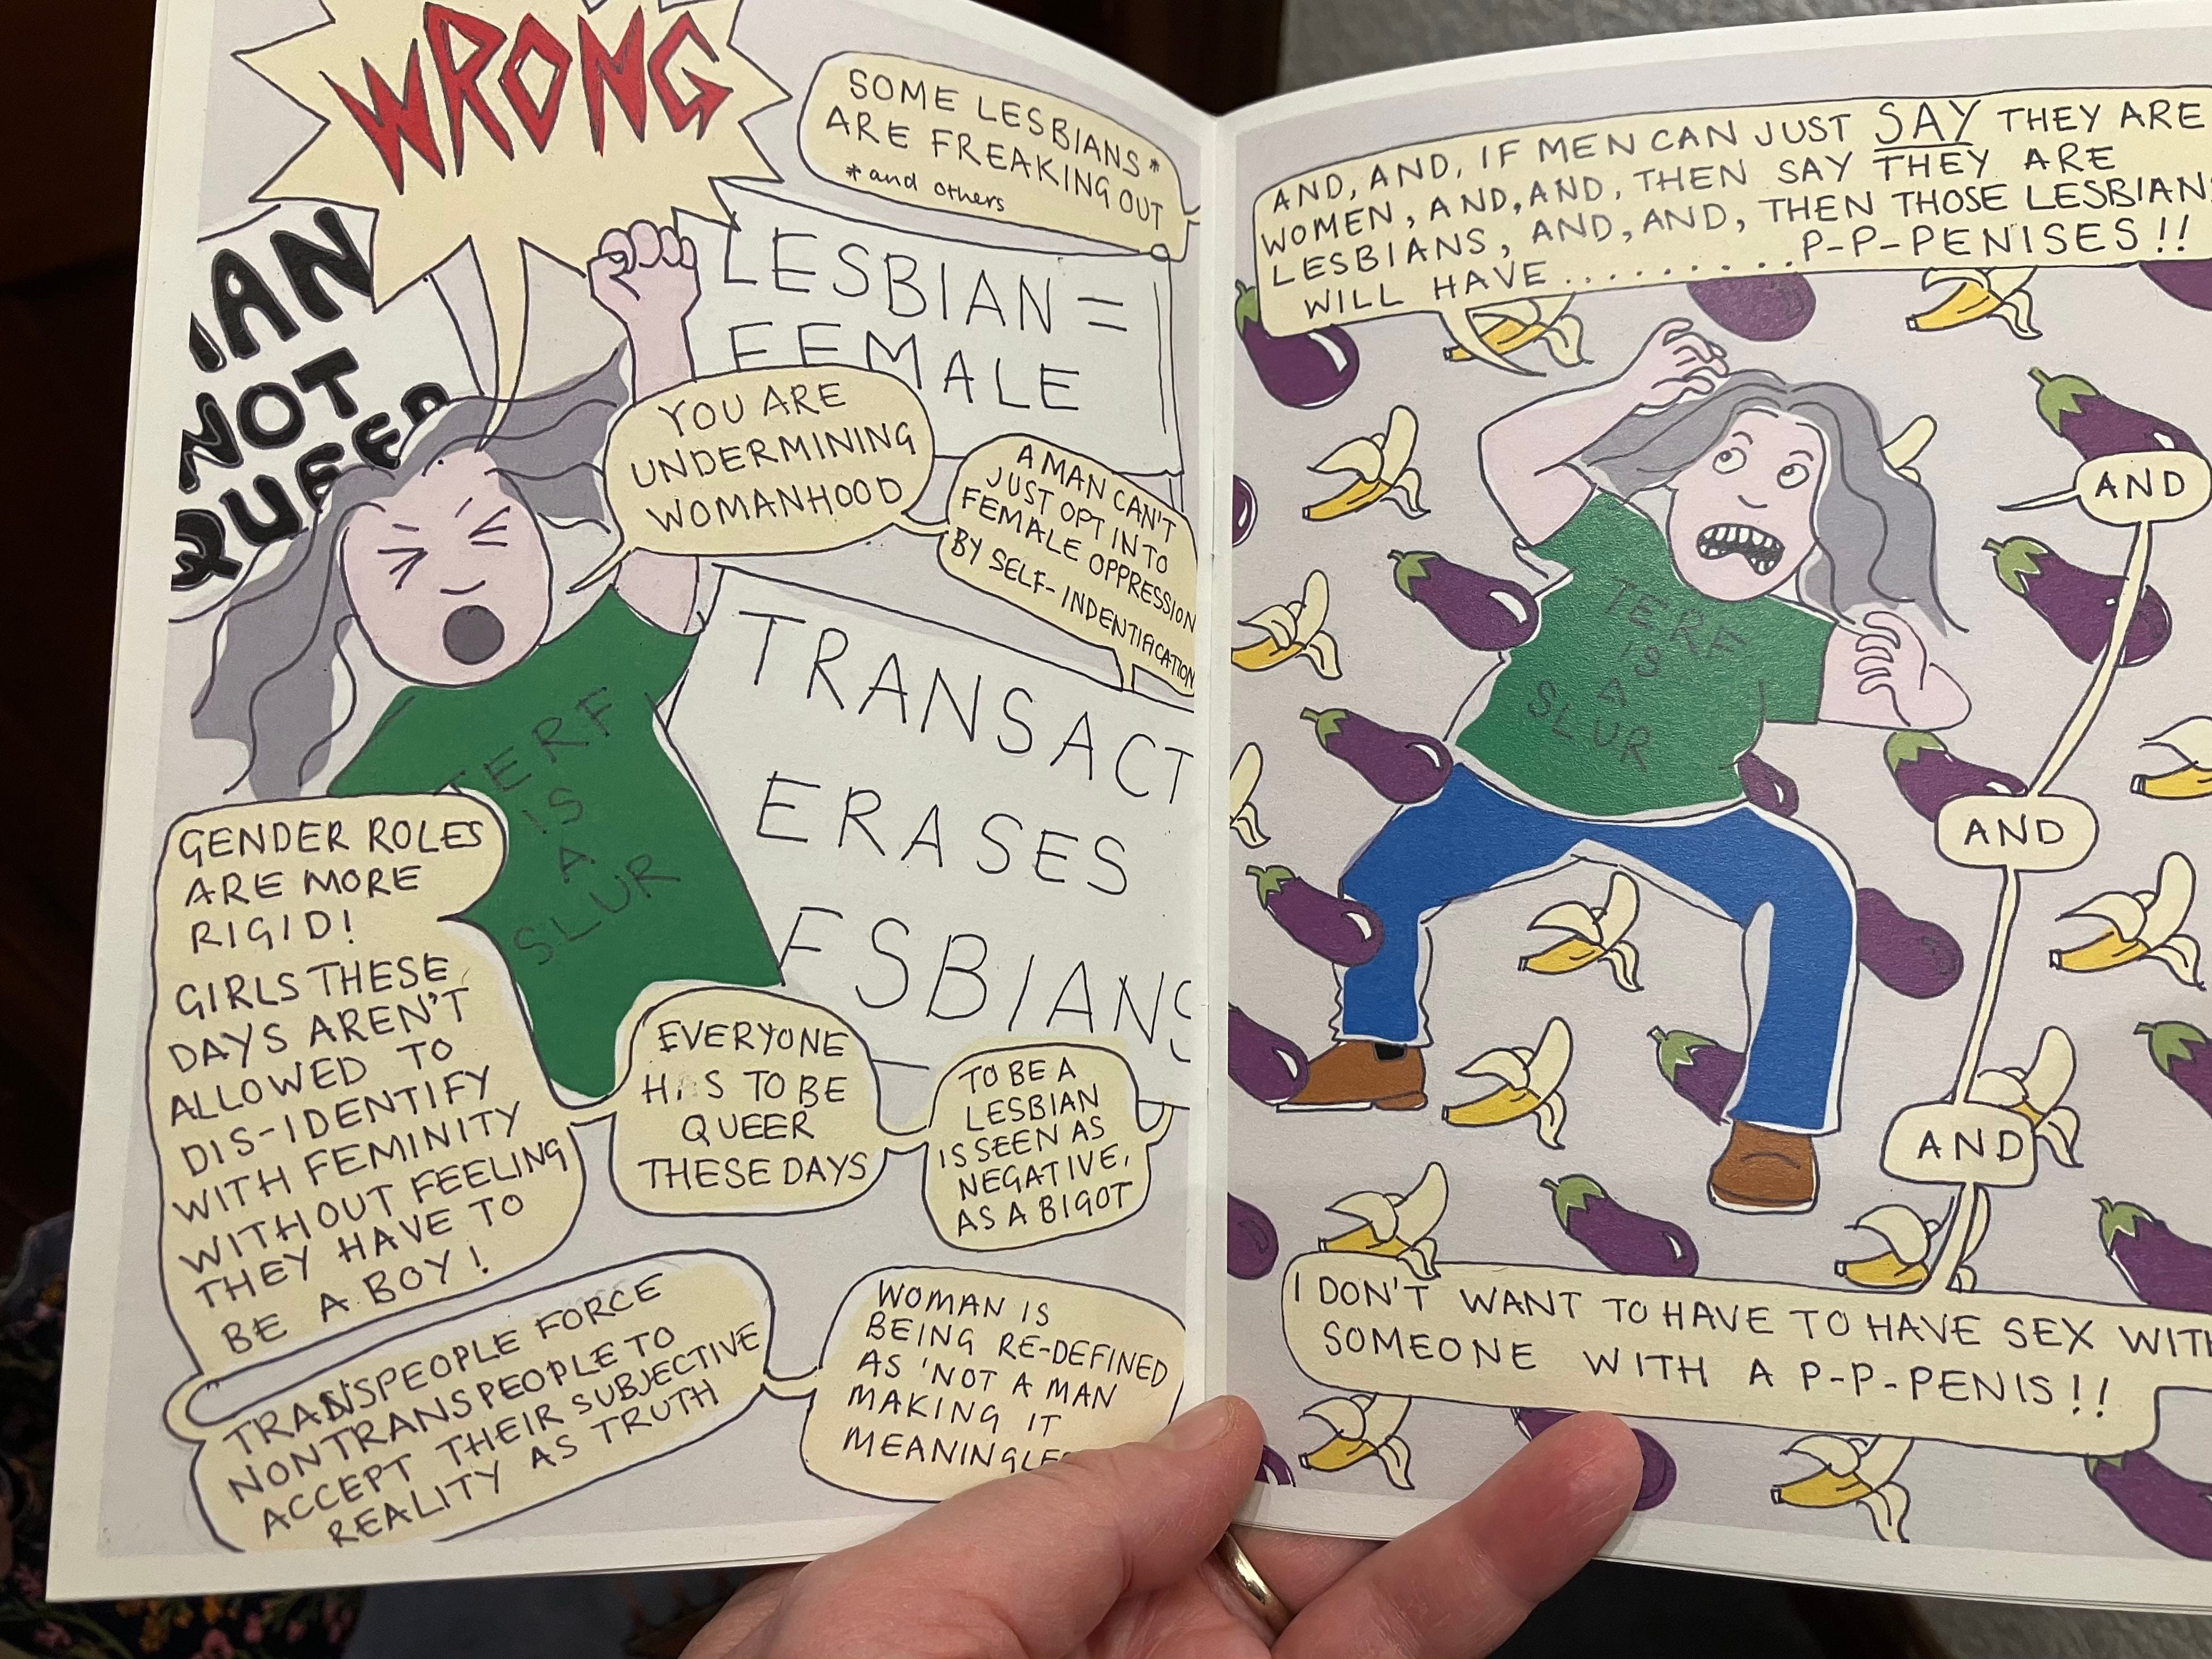 WRONG
SOME LESBIANS*
ARE FREAKING OUT
*and others
IAN
NOT
QUEER
LESBIAN =
FEMALE
YOU ARE
UNDERMINING
WOMANHOOD
A MAN CAN'T
JUST OPT INTO
FEMALE OPPRESSION
BY SELF-INDENTIFICATION
TRANSACT
ERASES
ESBIANS
TERF
IS
A
SLUR
GENDER ROLES
ARE MORE
RIGID!
GIRLS THESE
DAYS AREN'T
ALLOWED TO
DIS-IDENTIFY
WITH FEMINITY
WITHOUT FEELING
THEY HAVE TO
BE A BOY!
EVERYONE
HAS TO BE
QUEER
THESE DAYS
TO BE A
LESBIAN
IS SEEN AS
NEGATIVE,
AS A BIGOT
TRANSPEOPLE FORCE
NONTRANSPEOPLE TO
ACCEPT THEIR SUBJECTIVE
REALITY AS TRUTH
WOMAN IS
BEING RE-DEFINED
AS 'NOT A MAN
MAKING IT
MEANINGLE
AND, AND, IF MEN CAN JUST SAY THEY ARE
WOMEN, AND, AND, THEN SAY THEY ARE
LESBIANS, AND, AND, THEN THOSE LESBIANS
WILL HAVE.........P-P-PENISES!!
TERF
IS
A
SLUR
AND
AND
AND
I DON'T WANT TO HAVE TO HAVE SEX WITH
SOMEONE WITH A P-P-PENIS!!